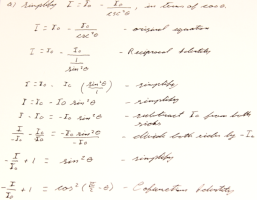 a) simplify I = I₀ - I₀/csc²θ, in terms of cosθ
I = I₀ - I₀/csc²θ - original equation
I = I₀ - I₀/(1/sin²θ) - Reciprocal Identity
I = I₀ - I₀ (sin²θ/1) - simplify
I = I₀ - I₀ sin²θ - simplify
I - I₀ = - I₀ sin²θ - subtract I₀ from both sides
I/-I₀ - I₀/-I₀ = -I₀ sin²θ/-I₀ - divide both sides by -I₀
-I/I₀ + 1 = sin²θ - simplify
-I/I₀ + 1 = cos²(π/2 - θ) - Cofunction Identity